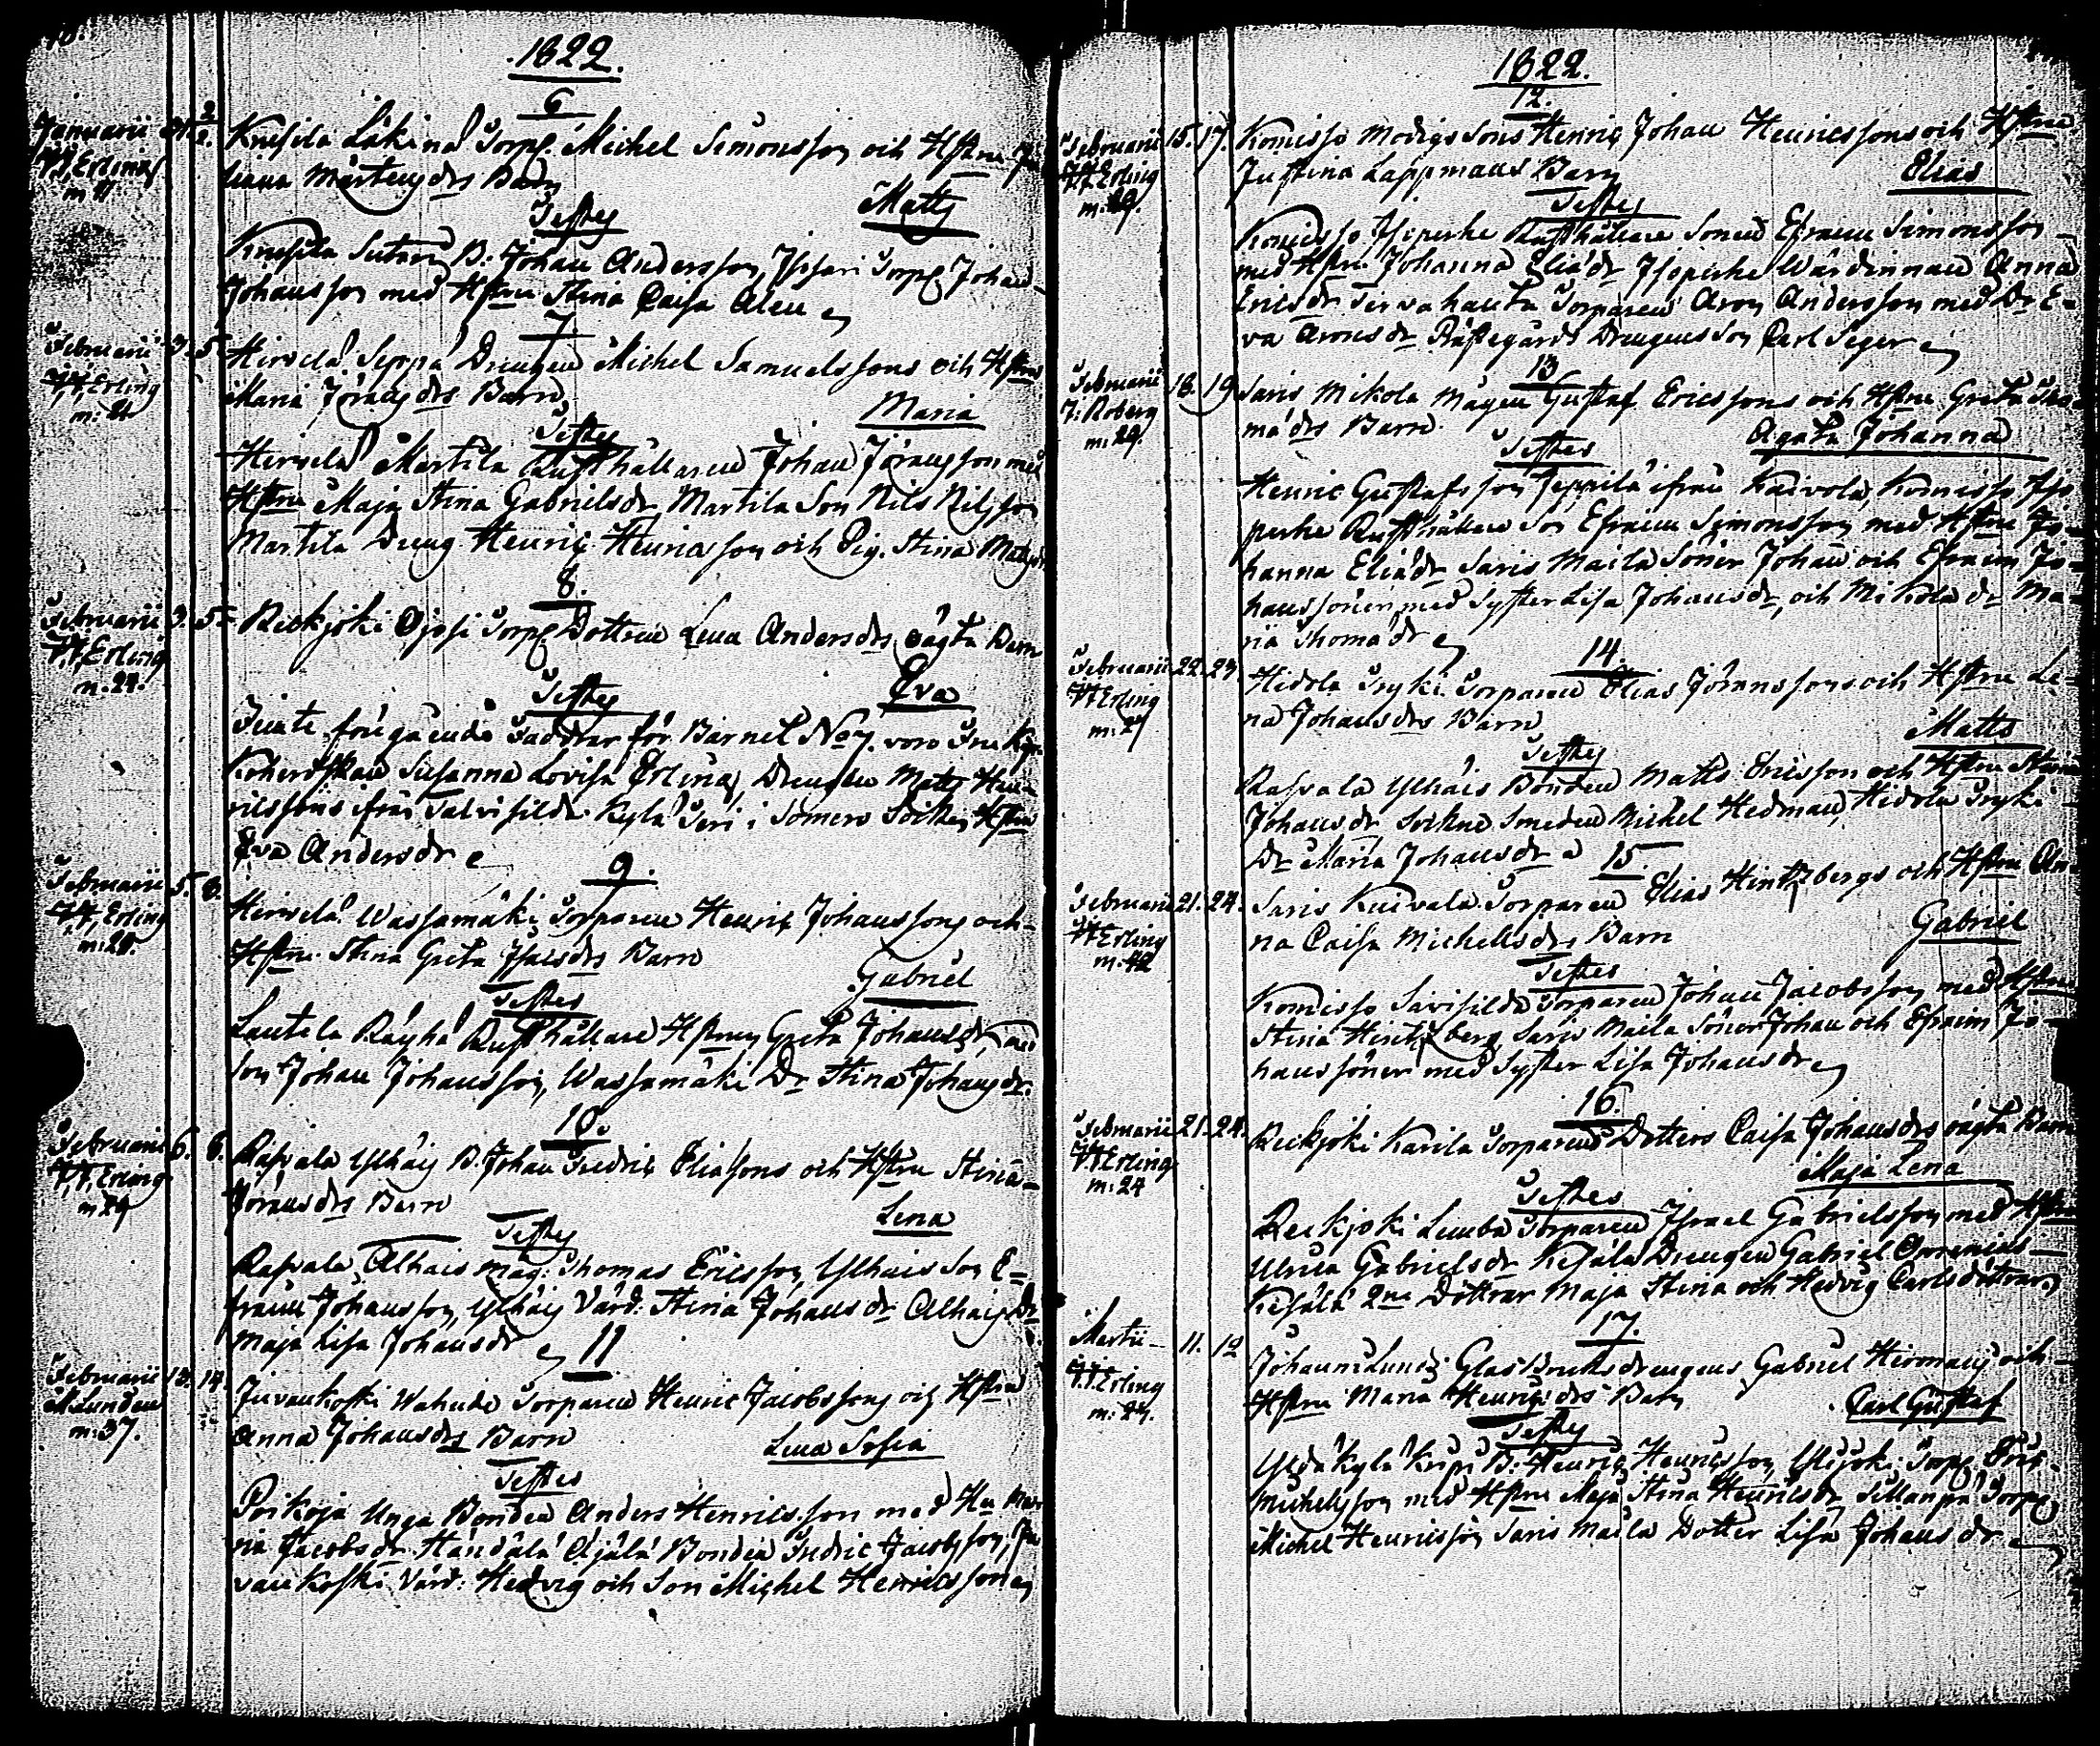 1822.
6
Januarii 31. 2/2.
Knesila Läkinä Torp. Michel Simonsson och Hstru
Mårtensdrs Barn
J. J. Erling
m
Testes Matts
Knesila Sutari B: Johan Andersson, Torp. Johan
Johansson med Hstru Stina Caisa Alen
7.
Februarii 3. 5.
Hirvelä Seppä Drengen Michel Samuelssons och Hstrus
J. J. Erling
m: 21
Maria Jöransdrs Barn Maria
Testes
Hirvelä Martila Rusthållaren Johan Jöransson med
Hstru Maja Stina Gabrielsdr, Martila Son Nils Nilsson
Martila Dreng Henric Henricsson och Pig. Stina
8.
Februarii 3. 5
Reckjoki Ojasi Torp. Dottren Lena Andersdrs oägta Barn
J. J. Erling
m. 24.
Testes Eva
föregående Faddrar för Barnet No 7. voro
Susanna Lovisa Erling, Drengen Matts Hen-
ricssons ifrån Talvisilda Kylä i Somero Sockn Hstru
Eva Andersdr
9.
Februarii 5. 6.
J. J. Erling
m: 28.
Hirvelä Wassamäki Torparen Henric Johanssons och
Hstru Stina Greta Isacsdrs Barn
Gabriel
Testes
Lautela Räyhä Rusthållare Hstrun Greta Johansdr, med
Son Johan Johansson, Wassamäki Dr Stina Johansdr.
10.
Februarii 6. 6.
J. J. Erling
m 29
Rasvala Ylhäis B. Johan Fredric Eliassons och Hstru Stina
Jöransdrs Barn
Lena
Testes
Rasvala Alhais Måg: Thomas Ericsson, Ylhäis Son E=
fraim Johansson, Ylhäis Värd: Stina Johansdr Alhais Dr
Maja Lisa Johansdr
11
Februarii 13. 14.
M: Lunden
m: 37.
Juvankoski Torparen Henric Jacobssons och Hstrus
Anna Johansdrs Barn
Lena Sofia
Testes
Poikoja Unga Bonden Anders Henricsson med Hu Ma-
ria Jacobsdr Händälä Äjälä Bonden Fredric Jacobsson, Ju
vankoski Värd: Hedvig och Son Michel Henricsson
1822.
12.
Februarii 15. 17.
J. J. Erling
m: 29.
Komisso Modigs Sons Henric Johan Henricssons och Hstrus
Justina Lappmans Barn Elias
Testes
Komisso Isoperhe Rusthållare Sonen Efraim Simonsson
med Hstru Johanna Eliædr Isoperhe Wärdinnan Anna
Ericsdr Torparen Aron Andersson med Dr E-
va Aronsdr Rästegårds Drengens Son Carl Seger
13
Februarii 18. 19.
J: Roberg
m: 29.
Saris Mikola Mågen Gustaf Ericssons och Hstru Greta Tho-
mædrs Barn Agata Johanna
Testes
Henric Gustafsson Seppilä ifrån Kaivola, Komisso Iso
perhe Rusthållare Son Efraim Simonsson med Hstru Jo-
hanna Eliædr Saris Maila Söner Johan och Efraim Jo-
hanssöner, med Syster Lisa Johansdr, och Mikola Dr Ma-
ria Thomædr
14
Februarii 22. 23.
J. J. Erling
m: 27
Hidola Tryki Torparen Elias Jöranssons och Hstru Le-
na Johansdrs Barn
Matts
Testes
Rasvala Ylhäis Bonden Matts Ericsson och Hstru Stina
Johansdr Sockne Smeden Michel Hedman, Hidola Tryki
Dr Maria Johansdr
15.
Februarii 21. 24.
J. J. Erling
m: 42
Saris Kuivala Torparen Elias Hintzbergs och Hstru An-
na Caisa Michelsdrs Barn Gabriel
Testes
Komisso Savisilda Torparen Johan Jacobsson med Hstru
Stina Hintzberg, Saris Maila Söner Johan och Efraim Jo-
hanssöner med Syster Lisa Johansdr
16.
Februarii 21. 24.
J. J. Erling
m: 24
Reckjoki Karila Torparens Dotters Caisa Johansdrs oägta Barn
Maja Lena
Testes
Reckjoki Lemba Torparen Israel Gabrielsson med Hstru
Ulrica Gabrielsdr Kesälä Drengen Gabriel
Kesälä 2ne Döttrar Maja Stina och Hedvig Carlsdöttrar
17.
Martii 11. 12
J. J. Erling
m: 27.
Johannislunds Glas Bruks drengens Gabriel och
Hstru Maria Henricsdrs Barn Carl Gustaf
Testes
Kylä B: Henric Henricsson Torp. Eric
Michelsson med Hstru Maja Stina Henricsdr Sillanpä Torp.
Michel Henricsson Saris Maila Dotter Lisa Johansdr